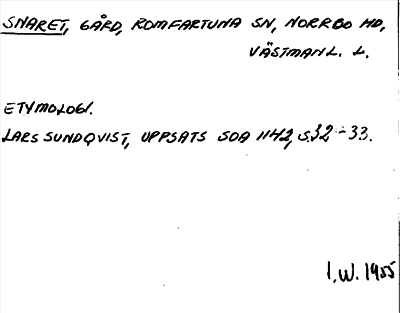 SNARET, GÅRD, ROMFARTUNA SN, NORRBO HD,
VÄSTMANL. L.
ETYMOLOGI.
LARS SUNDQVIST, UPPSATS SOA 1142, S.32-33.
I.W. 1955